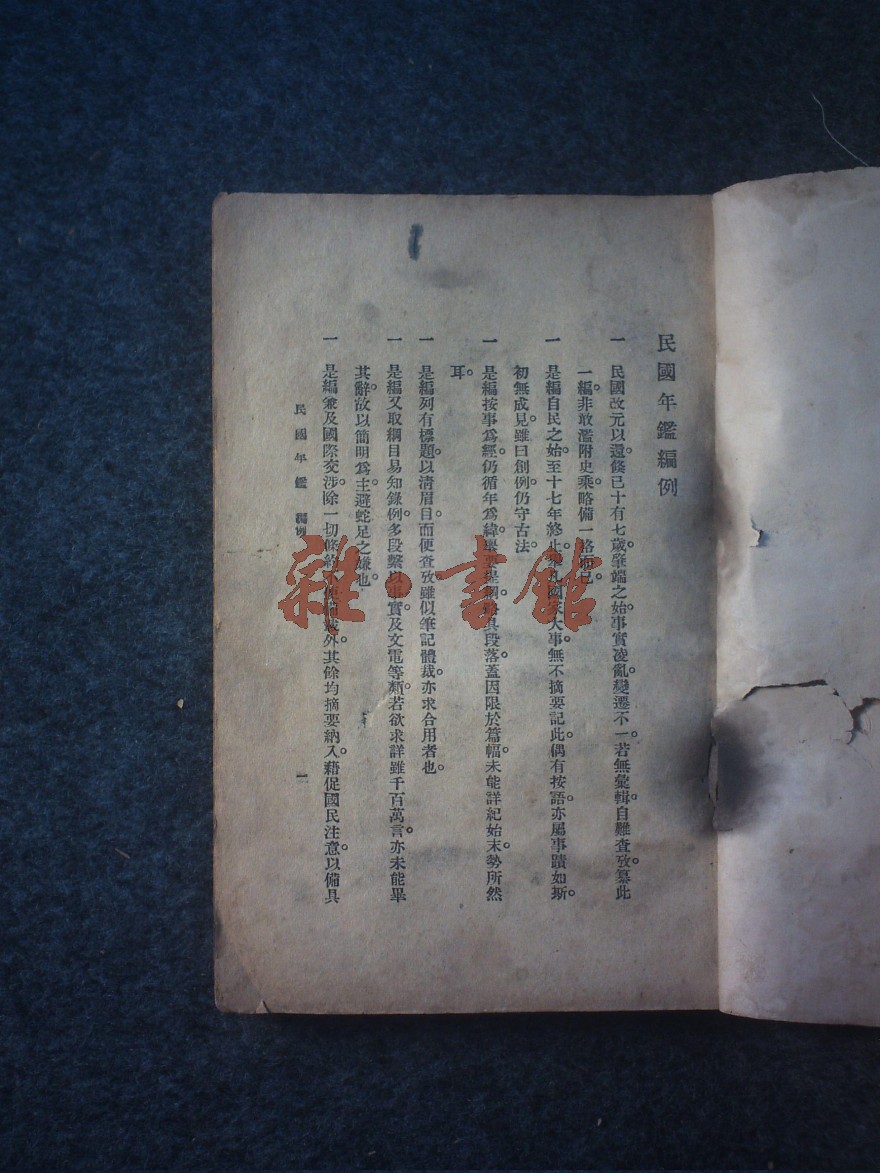 民國年鑑編例
一 民國改元以還。倏已十有七歲。肇端之始。事實凌亂。變遷不一。若無彙輯。自難查攷。纂此
一編。非敢濫附史乘。略備一格而已。
一 是編自民之始。至十七年終止。舉凡國家大事。無不摘要記此。偶有按語。亦屬事蹟如斯。
初無成見。雖曰創例。仍守古法。
一 是編按事爲經。仍循年爲緯。舉要提綱。具段落。蓋因限於篇幅。未能詳紀始末。勢所然
耳。
一 是編列有標題。以清眉目。而便查攷。雖似筆記體裁。亦求合用者也。
一 是編又取綱目易知錄例。多段繫以事實。及文電等類。若欲求詳。雖千百萬言。亦未能畢
其辭。故以簡明爲主。避蛇足之嫌也。
一 是編兼及國際交涉。除一切條約不便備載外。其餘均摘要納入。藉促國民注意。以備具
民國年鑑 編例 一
雜·書館